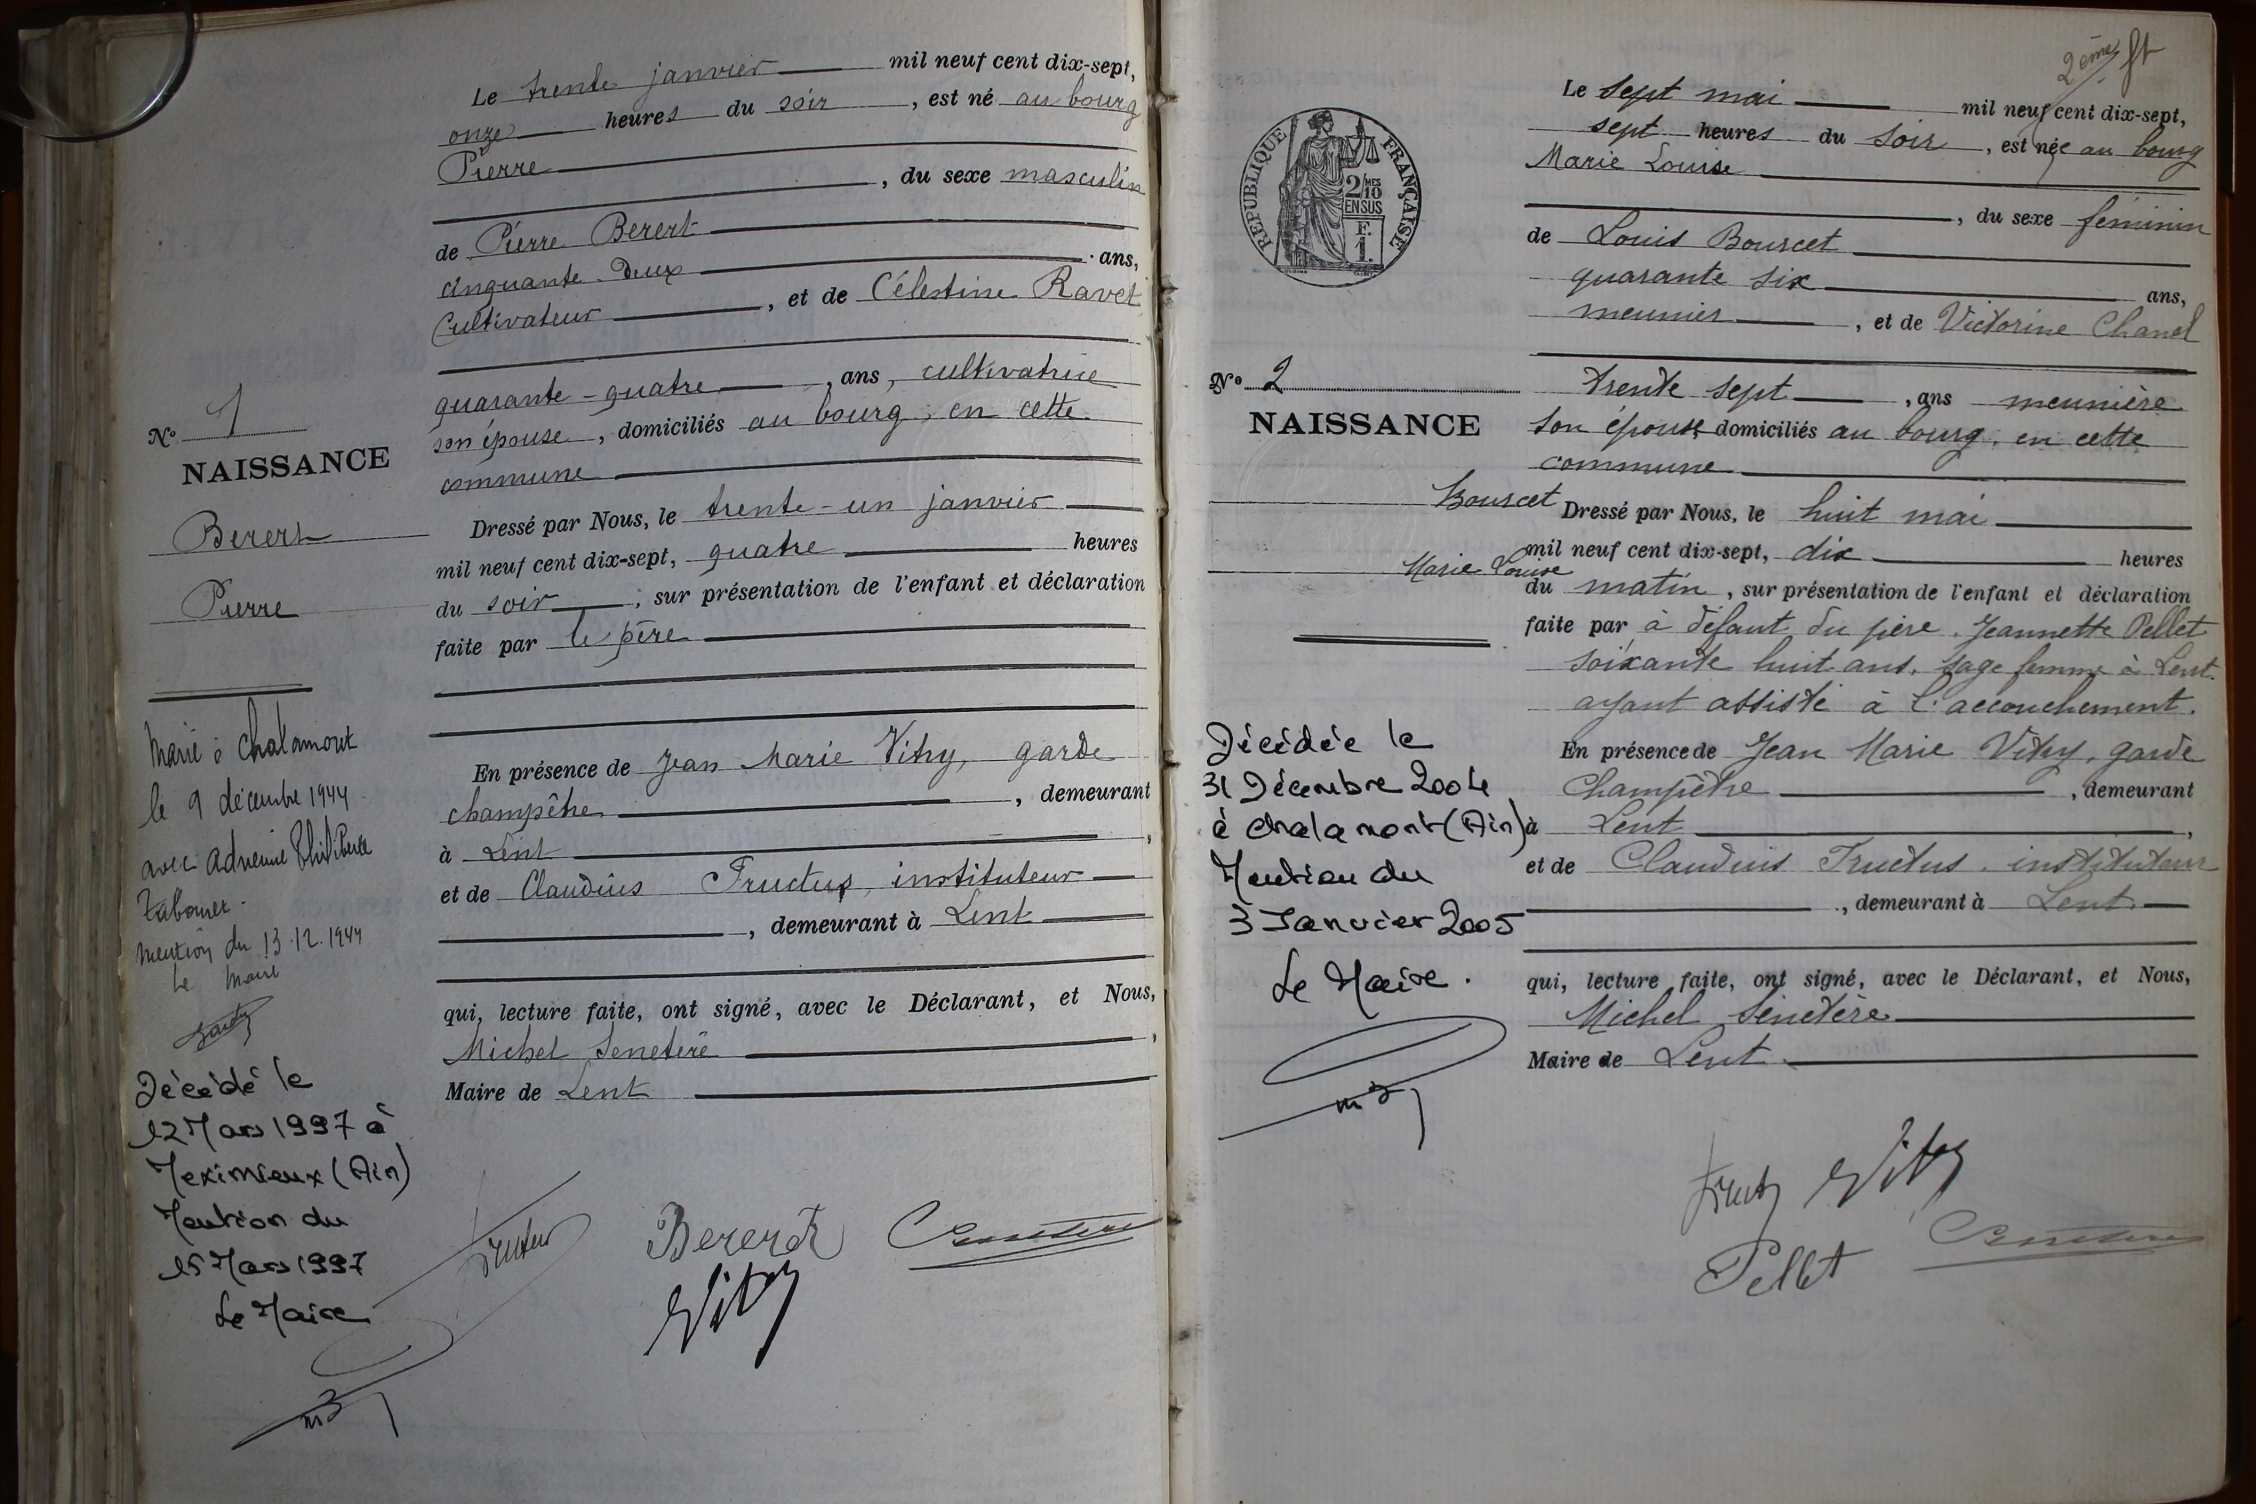 Le trente janvier mil neuf cent dix-sept,
onze heures du soir, est né au bourg
Pierre
, du sexe masculin
de Pierre Berert
cinquante-deux ans,
cultivateur, et de Célestine Ravet
quarante-quatre, ans, cultivatrice
son épouse, domiciliés au bourg, en cette
commune
Dressé par Nous, le trente-un janvier
mil neuf cent dix-sept, quatre heures
du soir, sur présentation de l'enfant et déclaration
faite par le père
En présence de Jean Marie Vitry, garde
champêtre, demeurant
à Lent,
et de Claudius Fructus, instituteur
, demeurant à Lent
qui, lecture faite, ont signé, avec le Déclarant, et Nous,
Michel Senetère,
Maire de Lent
N° 1
NAISSANCE
Berert
Pierre
Marié à Chalamont
le 9 décembre 1944
avec Adrienne Philiberte
mention du 13.12.1944
Le Maire
Décédé le
12 Mars 1997 à
Meximieux (Ain)
Mention du
15 Mars 1997
Le Maire
Berert
Vitry
2ème ft
Le sept mai mil neuf cent dix-sept,
sept heures du soir, est née au bourg
Marie Louise
, du sexe féminin
de Louis Bourcet
quarante six ans,
meunier, et de Victorine Chanel
trente sept, ans meunière
son épouse, domiciliés au bourg, en cette
commune
Dressé par Nous, le huit mai
mil neuf cent dix-sept, dix heures
du matin, sur présentation de l'enfant et déclaration
faite par à défaut du père, Jeannette Pellet
soixante huit ans, sage femme à Lent.
ayant assisté à l'accouchement.
En présence de Jean Marie Vitry, garde
Champêtre, demeurant
à Lent,
et de Claudius Fructus, instituteur
, demeurant à Lent
qui, lecture faite, ont signé, avec le Déclarant, et Nous,
Michel Senetère
Maire de Lent
RÉPUBLIQUE FRANÇAISE
2/MES
10
EN SUS
F.
1.
N° 2
NAISSANCE
Bourcet
Marie Louise
Décédée le
31 Décembre 2004
à Chalamont (Ain)
Mention du
3 Janvier 2005
Le Maire.
Vitry
Pellet